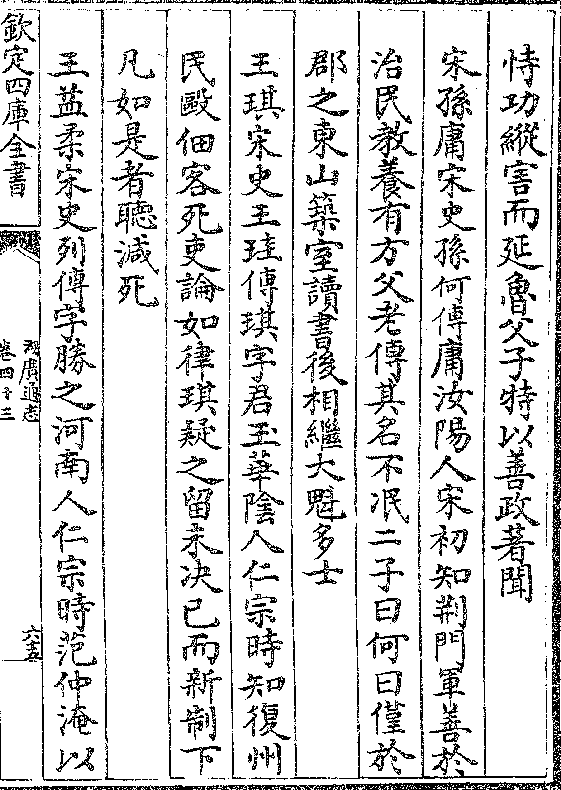 恃功縱害而延魯父子特以善政著聞
宋孫庸宋史孫何傳庸汝陽人宋初知荆門軍善於
治民教養有方父老傳其名不泯二子曰何曰僅於
郡之東山築室讀書後相繼大魁多士
王琪宋史王珪傳琪字君玉華陰人仁宗時知復州
民毆佃客死吏論如律琪疑之留未決已而新制下
凡如是者聽減死
王益柔宋史列傳字勝之河南人仁宗時范仲淹以
欽定四庫全書
湖廣通志
卷四十三
六十五